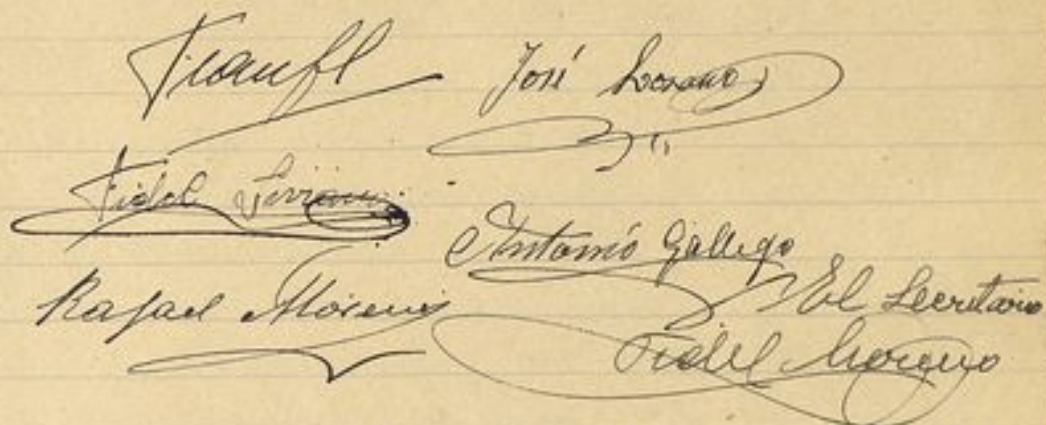 José Lozano
Fidel Serrano
Antonio Gallego
Rafael Moreno
El Secretario
Fidel Moreno